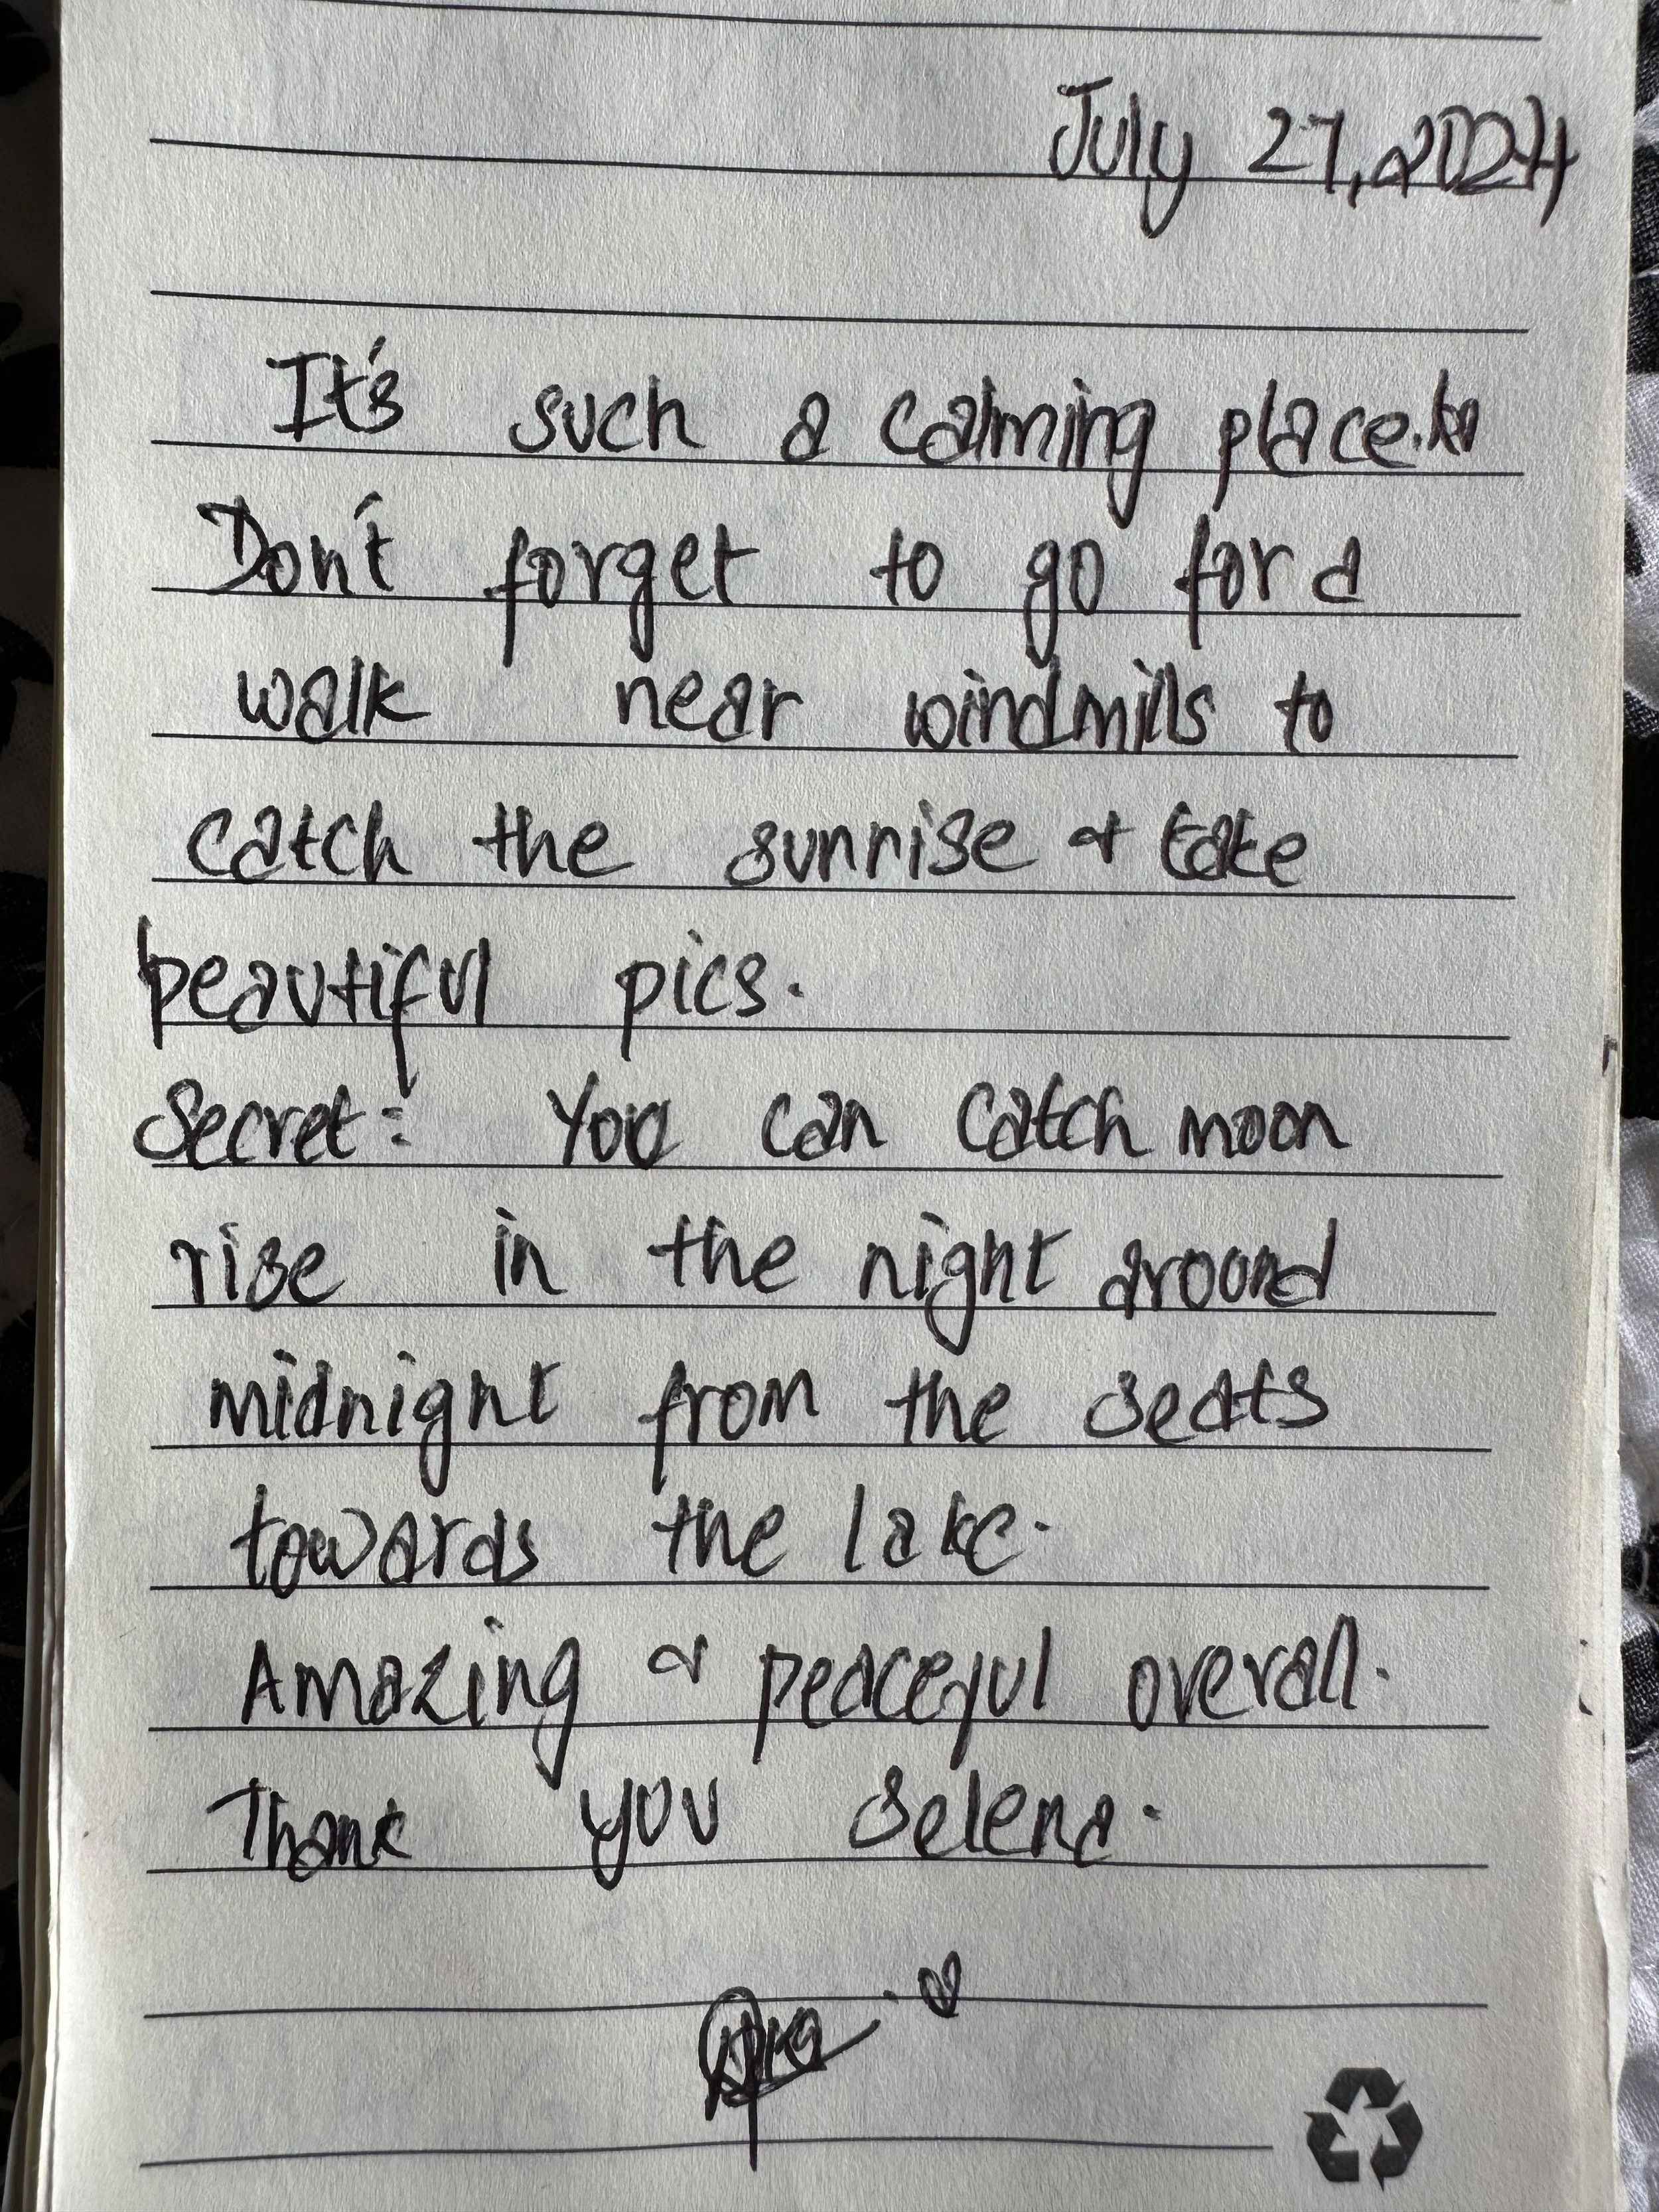 July 27, 2024
It's such a calming place.
Don't forget to go for a
walk near windmills to
catch the sunrise & take
beautiful pics.
Secret: You can catch moon
rise in the night around
midnight from the seats
towards the lake.
Amazing & peaceful overall.
Thank you Selena.